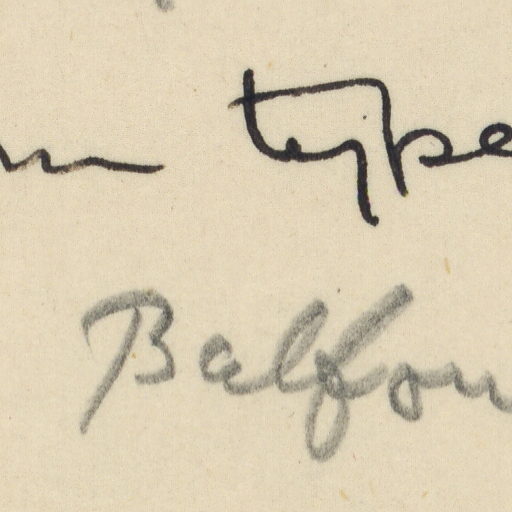 type
Balfou